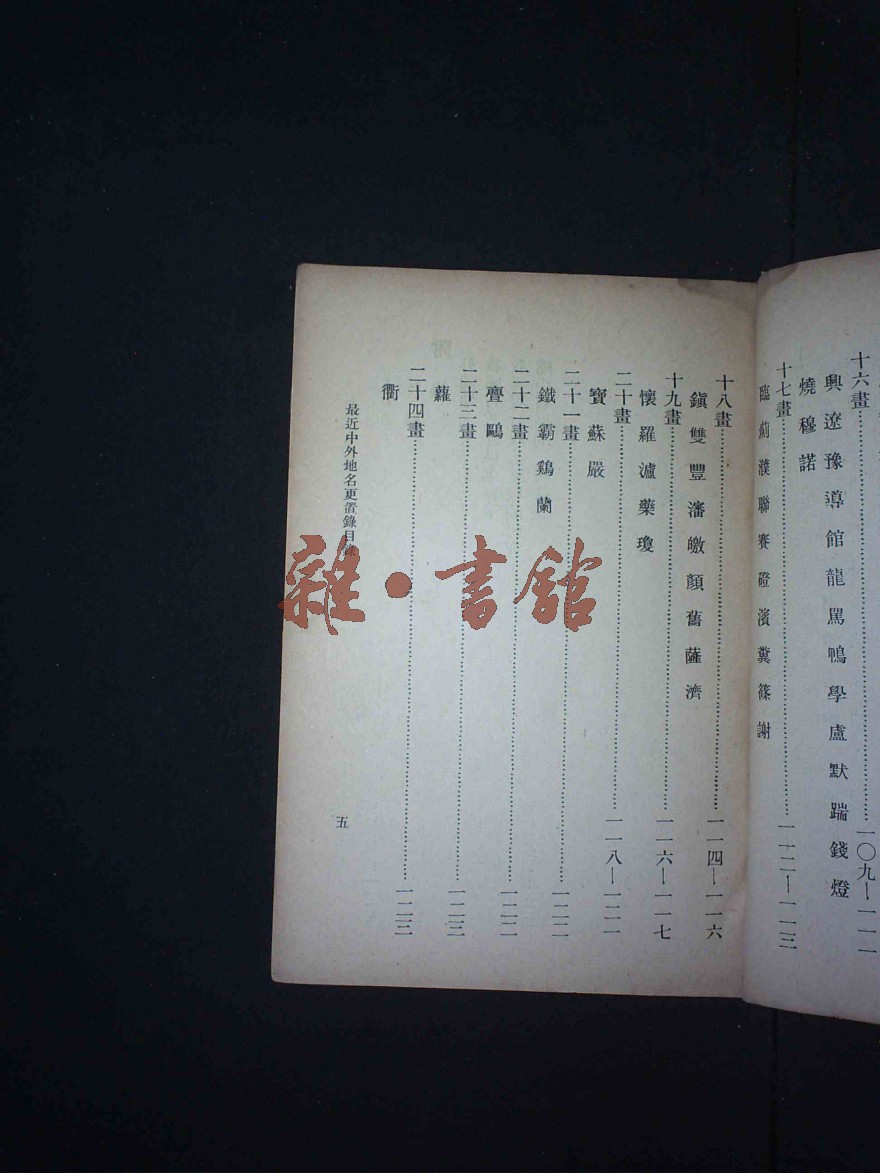 十六畫……一〇九—一一一
興遼豫導館龍罵鴨學盧默踹錢燈
燒穆諾
十七畫……一一二—一一三
臨薊濮聯賽磴濱糞篠謝
十八畫……一一四—一一六
鎭雙豐瀋皦顏舊薩濟
十九畫……一一六—一一七
懷羅瀘藥瓊
二十畫……一一八—一二一
寶蘇嚴
二十一畫……一二二
鐵霸鷄蘭
二十二畫……一二二
疊鷗
二十三畫……一二三
蘿
二十四畫……一二三
衢
最近中外地名更置錄目錄
五
雜·書館